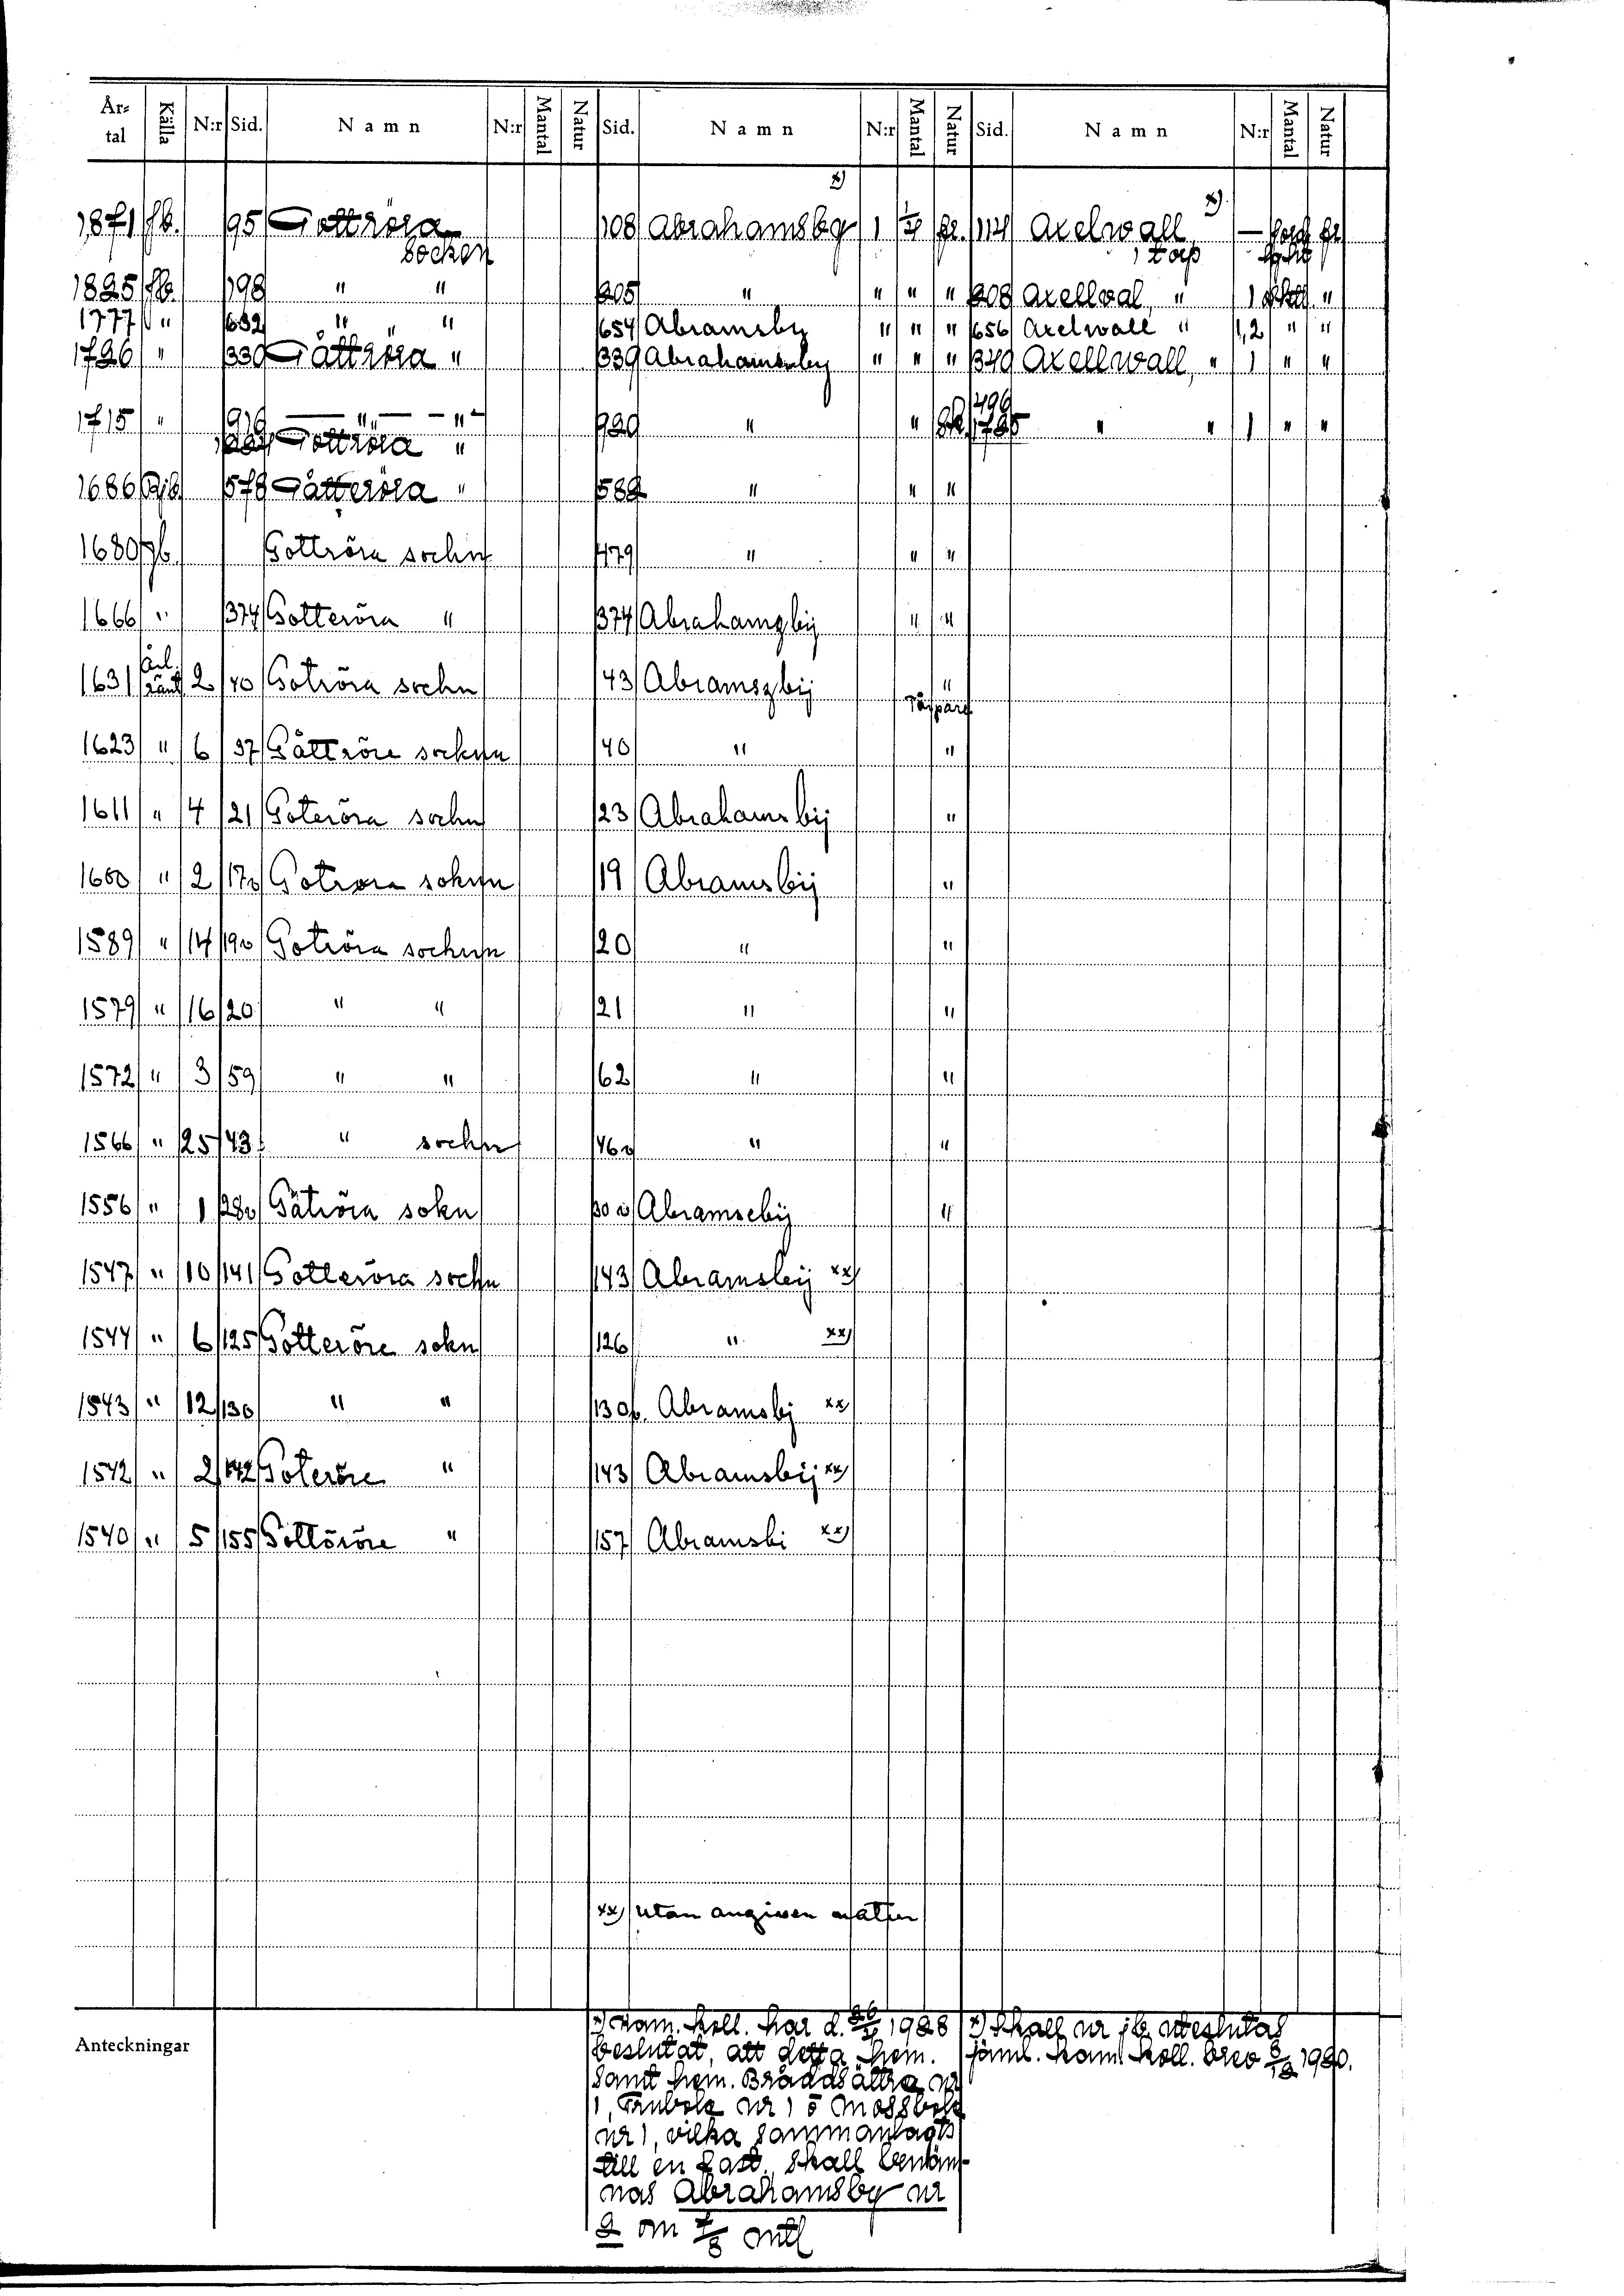 År-tal Källa N:r Sid. Namn N:r Mantal Natur Sid. Namn N:r Mantal Natur Sid. Namn N:r Mantal Natur
x) x)
1871 jb. 95 Gottröra 108 Abrahamsby 1 1/4 fr. 114 Axelwall —
socken 1 torp
1825 jb. 198 " " 205 " " " " 208 Axellwal, " 1 "
1777 " 632 " " " 654 Abramsby " " " 656 Axelwall " 1,2 " "
1726 " 330 Gåttröra " 339 Abrahamsby " " " 340 Axellwall, " 1 " "
1715 " 916 — " — - " - 920 " " Sk. " " 1 " "
Gottröra "
1686 Rjb. 578 Gåtteröra " 582 " " "
1680 jb. Gottröra sochn 479 " " "
1666 " 374 Gotteröra " 374 Abrahamzbij " "
1631 Årl. ränt. 2 40 Gotröra sochn 43 Abramszbij "
1623 " 6 37 Gåttröre soknn 40 " "
1611 " 4 21 Goteröra sochn 23 Abrahamsbij "
1600 " 2 17v Gotrora soknn 19 Abramsbij "
1589 " 14 19v Gotröra sochnn 20 " "
1579 " 16 20 " " 21 " "
1572 " 3 59 " " 62 " "
1566 " 25 43 " sochn 46v " "
1556 " 1 28v Gåtröra sokn 30v Abramsebij "
1547 " 10 141 Gotteröra sochn 143 Abramsbij xx)
1544 " 6 125 Gotteröre sokn 126 " xx)
1543 " 12 130 " " 130v. Abramsbj xx)
1542 " 2 142 Goteröre " 143 Abramsbij xx)
1540 " 5 155 Gottöröre " 157 Abramsbi xx)
xx) utan angiven natur
Anteckningar
x) Kam. Koll. har d. 26/4 1928
beslutat, att detta hem.
samt hem. Bråddsättra nr
1, Grubola nr 1 o Mossbola
nr 1, vilka sammanlagts
till en fast., skall benäm-
nas Abrahamsby nr
2 om 7/8 mtl
x) Skall ur jb uteslutas
jäml. Kam. Koll. brev 1920.